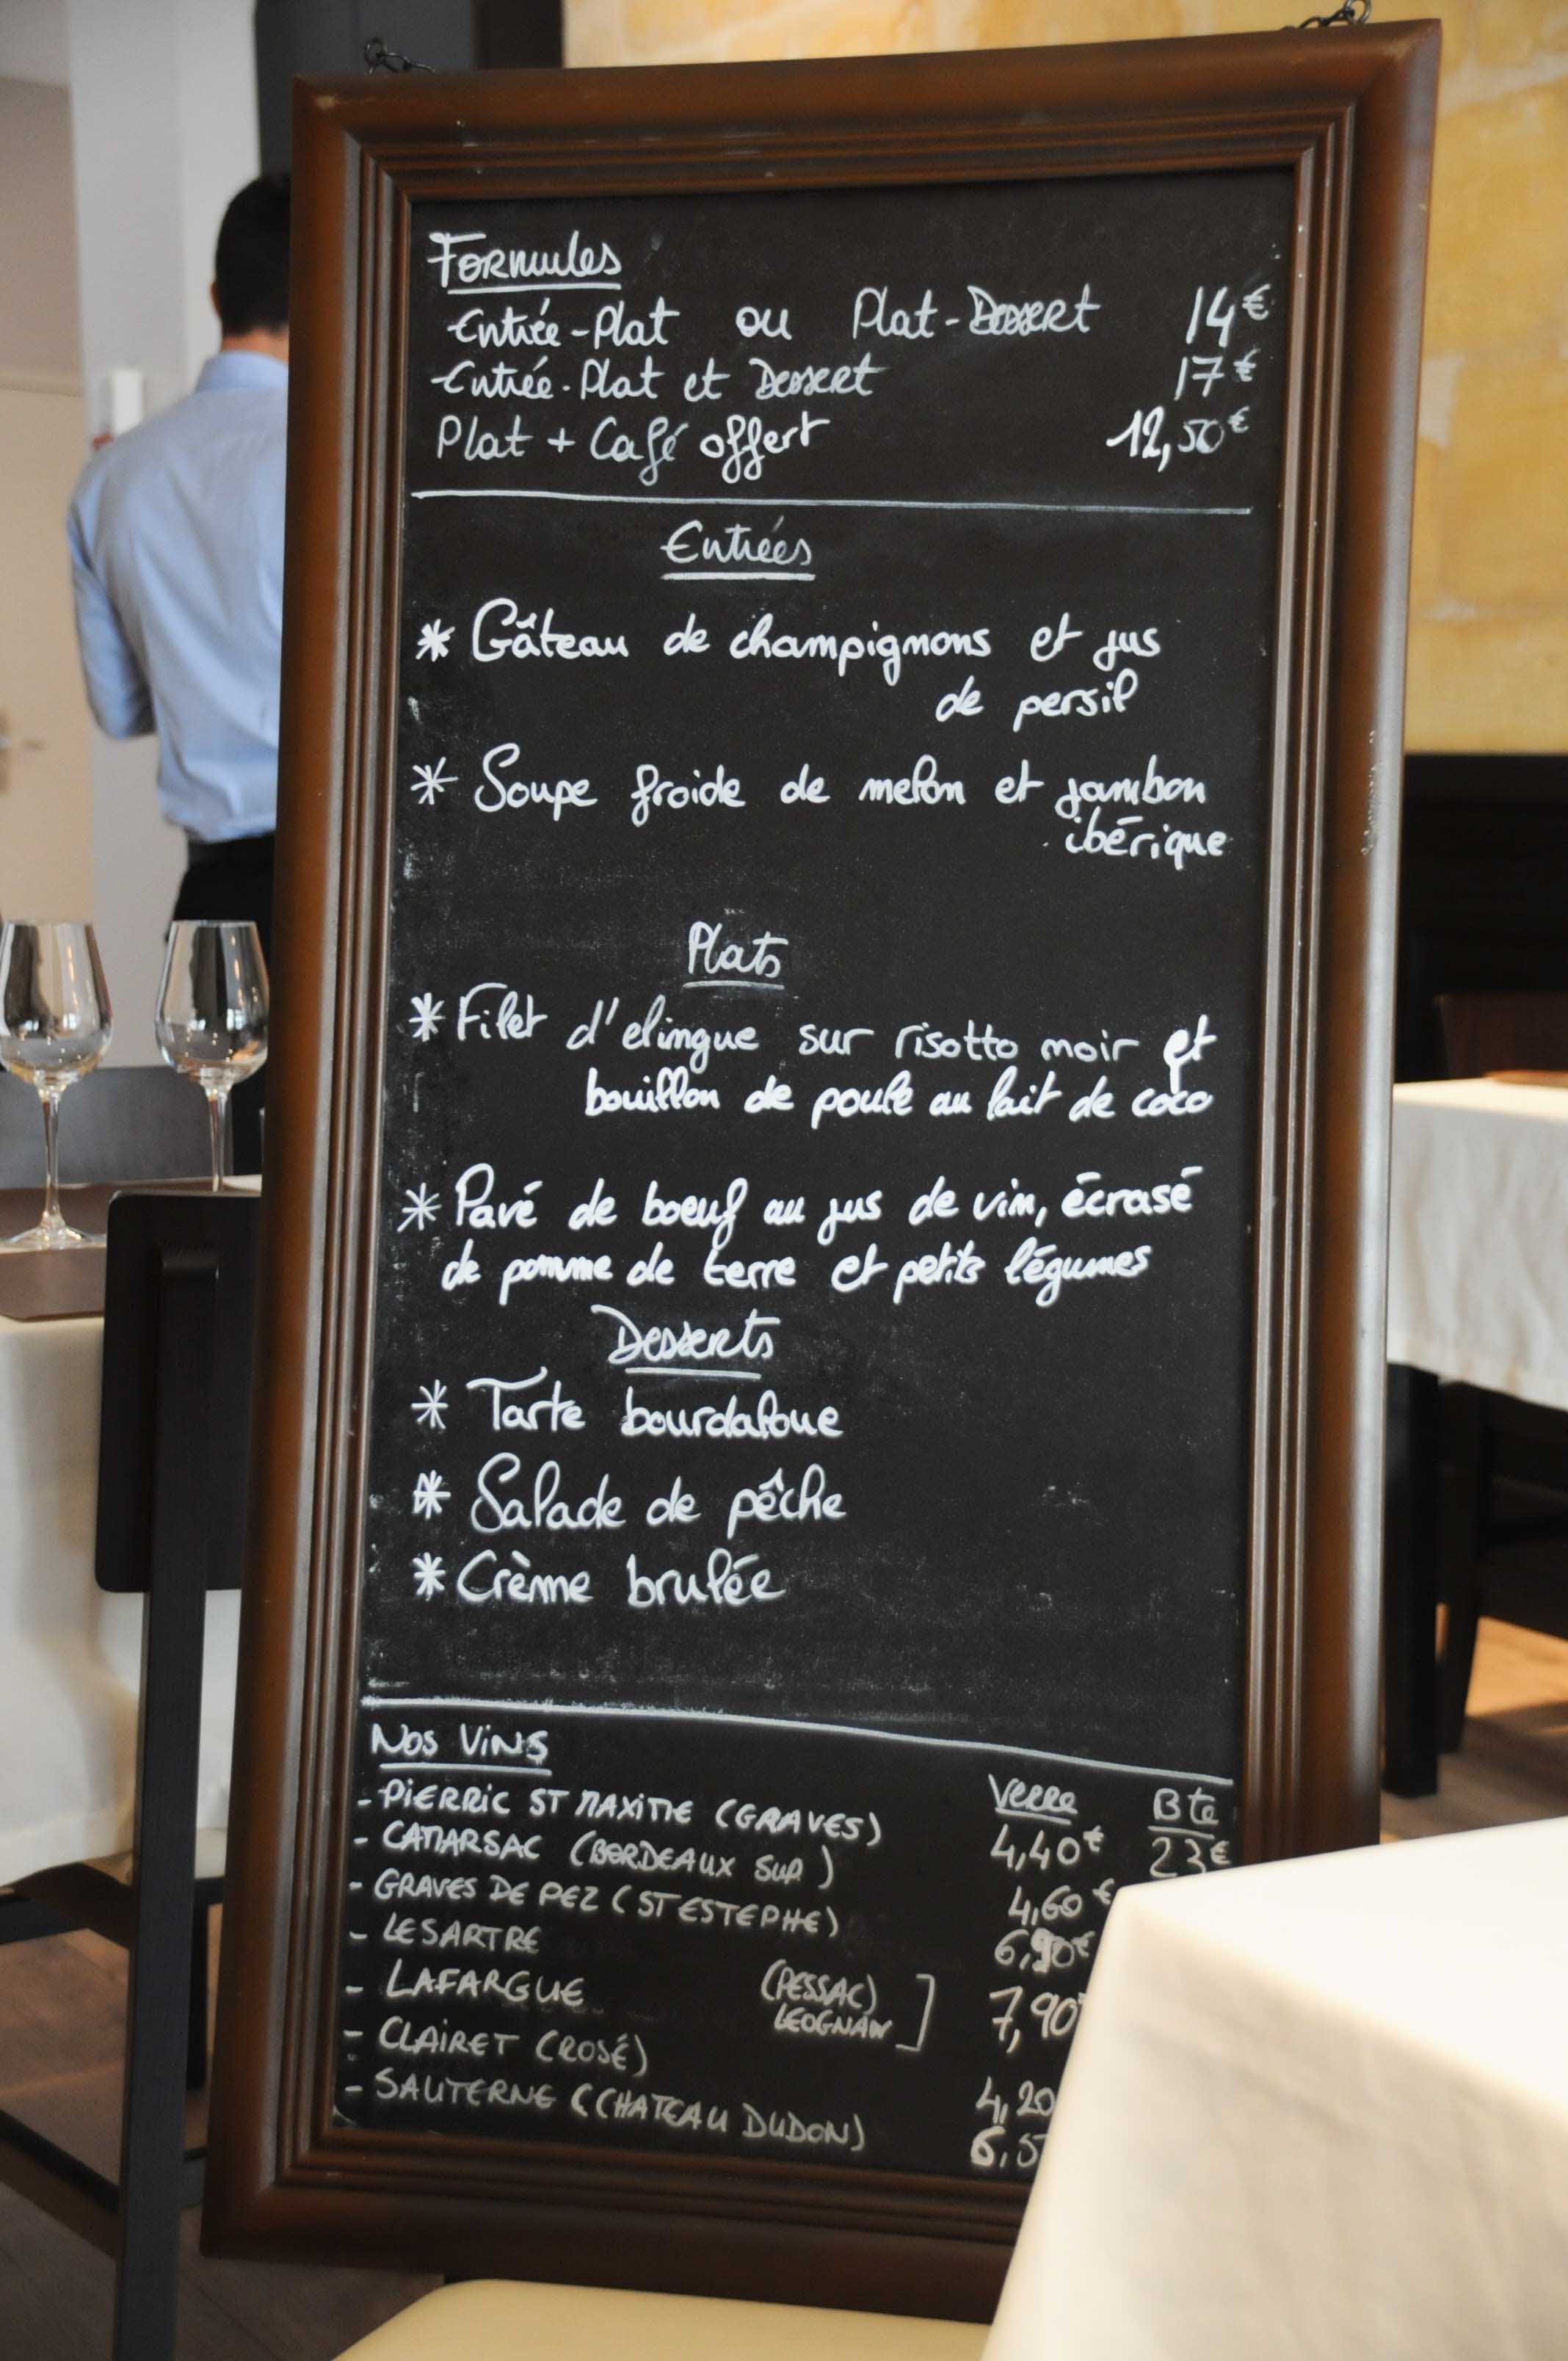 Formules
Entrée-Plat ou Plat-Dessert 14€
Entrée-Plat et Dessert 17€
Plat + Café offert 12,50€
Entrées
* Gâteau de champignons et jus
de persil
* Soupe froide de melon et jambon
ibérique
Plats
* Filet d'elingue sur risotto noir et
bouillon de poule au lait de coco
* Pavé de boeuf au jus de vin, écrasé
de pomme de terre et petits légumes
Desserts
* Tarte bourdaloue
* Salade de pêche
* Crème brulée
Nos Vins Verre Bte
- PIERRIC ST MAXIME (GRAVES) 4,40€ 23€
- CAMARSAC (BORDEAUX SUP) 4,60€
- GRAVES DE PEZ (ST ESTEPHE) 6,90€
- LE SARTRE
- LAFARGUE (PESSAC) LEOGNAN ] 7,90
- CLAIRET (ROSÉ) 4,20
- SAUTERNE (CHATEAU DUDON) 6,5